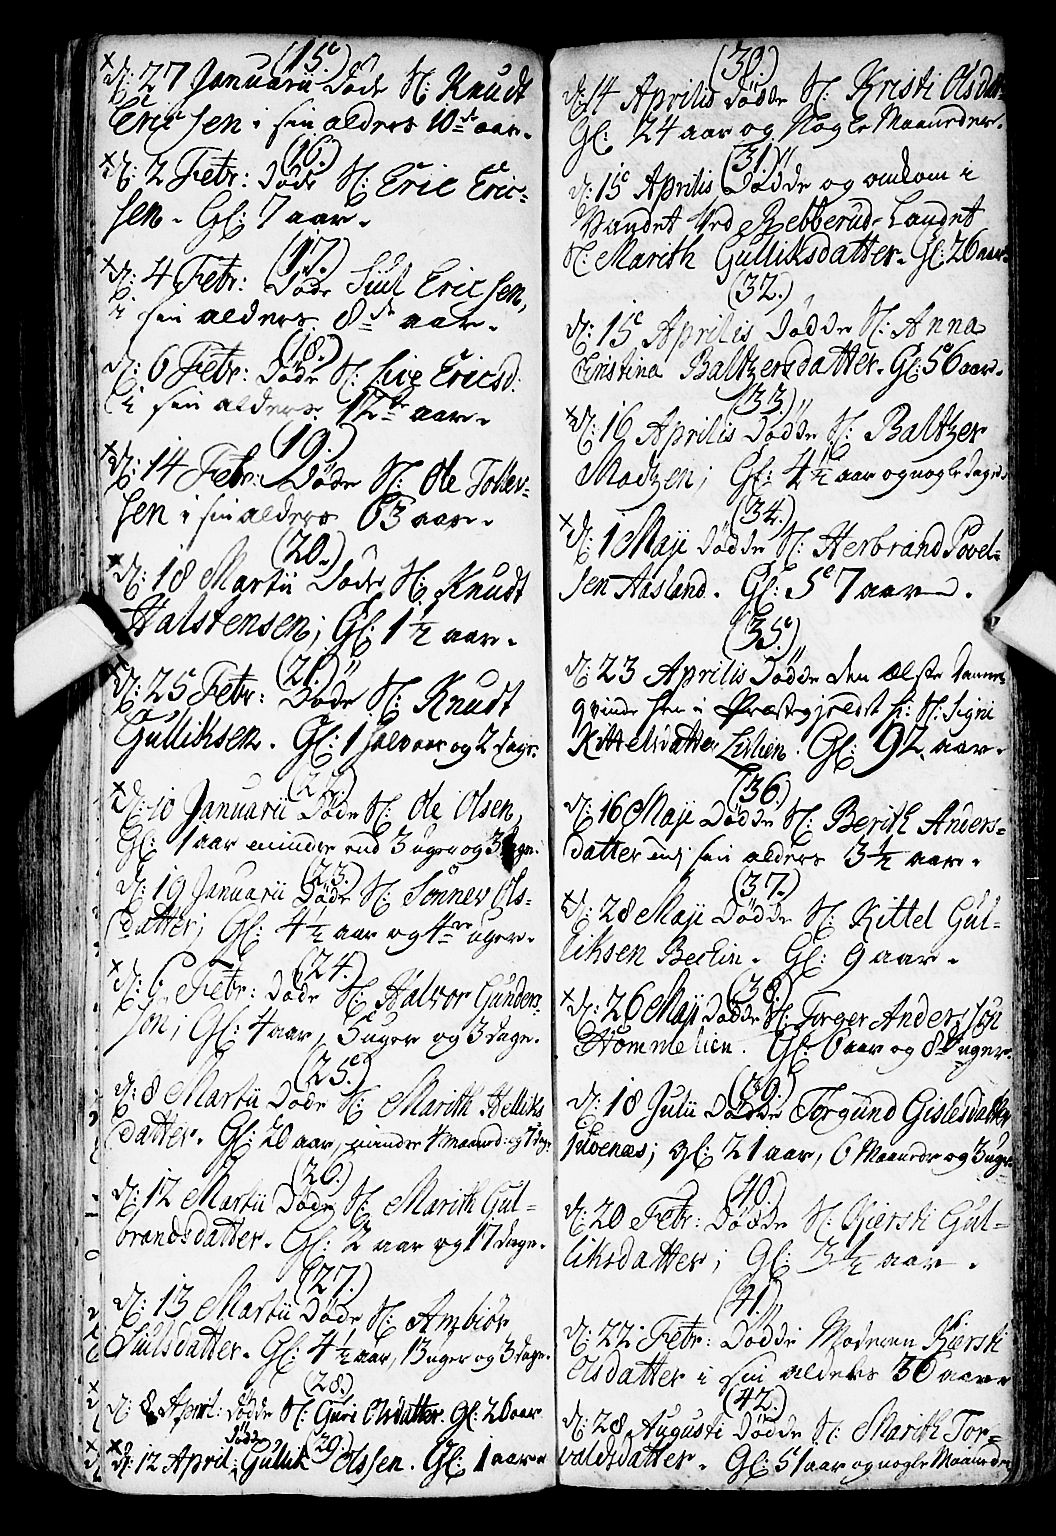 (15.)
d: 27 Januarii Døde N: Knudt
Ericsen i sin alders 10de aar.
(16.)
d: 2 Febr: Døde N: Eric Eric-
sen. Gl: 7 aar.
(17.)
d: 4 Febr: Døde Siul Ericsen,
i sin alders 8de aar.
(18.)
d: 6 Febr: Døde N: Live Ericsd:
i sin alders 12te aar.
(19.)
d: 14 Febr: Døde N: Ole Tollev-
sen i sin alders 63 aar.
(20.)
d: 18 Martii Døde N: Knudt
Halstensen; Gl: 1 1/2 aar.
(21.)
d: 25 Febr: Døde N: Knudt
Gulliksen. Gl: 1 halv aar og 2 dage.
(22.)
d: 10 Januarii Døde N: Ole Olsen,
Gl: 1 aar mindre end 3 uger og 3 dage.
(23.)
d: 19 Januarii Døde N: Sønnev Ols-
datter; Gl: 4 1/2 aar og 4re uger.
(24.)
d: 6 Febr: Døde N: Halvor Gunders-
søn; Gl: 4 aar, 5 uger og 3 dage.
(25.)
d: 8 Martii Døde N: Marith Helliks
datter. Gl: 20 aar, mindre 4 maaned: og 7 dage.
(26.)
d: 12 Martii Døde N: Marith Gul-
brandsdatter. Gl: 2 aar og 17 dage.
(27.)
d: 13 Martii Døde N: Ambiør
Siulsdatter. Gl: 4 1/2 aar, 13 uger og 3 dage.
(28.)
d: 8 April: Dødde N: Guri Olsdatter. Gl: 26 aar.
(29.)
d: 12 April: Dødde Gullik Olssen. Gl: 1 aar.
(30.)
d: 14 Aprilis Dødde N: Kristi Olsdat-
Gl: 24 aar og Nogle Maaneder.
(31.)
d: 15 Aprilis Dødde og omkom i
Vandet Ved Rebberud-Landet
N: Marith Gulliksdatter. Gl: 26 aar.
(32.)
d: 15 Aprilis Dødde N: Anna
Cristina Baltzersdatter. Gl: 56 aar.
(33.)
d: 16 Aprilis Dødde N: Baltzer
Madzen; Gl: 4 1/2 aar og nogle dage.
(34.)
d: 1 Maji Dødde N: Herbrand Povel-
sen Aasland. Gl: 57 aar.
(35.)
d: 23 Aprilis Dødde den ælste Danne
qvinde her i Præstegjeldet N: Signi
Kittelsdatter Lislien. Gl: 92 aar.
(36.)
d: 16 Maji Dødde N: Berith Anders-
datter i sin alders 3 1/2 aar.
(37.)
d: 28 Maji Dødde N: Kittel Gul-
liksen Berlin. Gl: 9 aar.
(38.)
d: 26 Maji Dødde N: Torger Anderssøn
Hommelien. Gl: 6 aar og 8te uger.
(39.)
d: 18 Julii Dødde Torgund Gislesdatter
Juvenæs; gl: 21 aar, 6 Maaneder og 3 uger.
(40.)
d: 20 Febr: Dødde N: Kjersti Gul-
liksdatter; Gl: 3 1/2 aar.
(41.)
d: 22 Febr: Dødde Madmoen Kjersti
Olsdatter i sin alders 36 aar
(42.)
d: 28 Augusti Dødde N: Marith Tor-
valdsdatter. Gl: 51 aar og nogle Maaneder